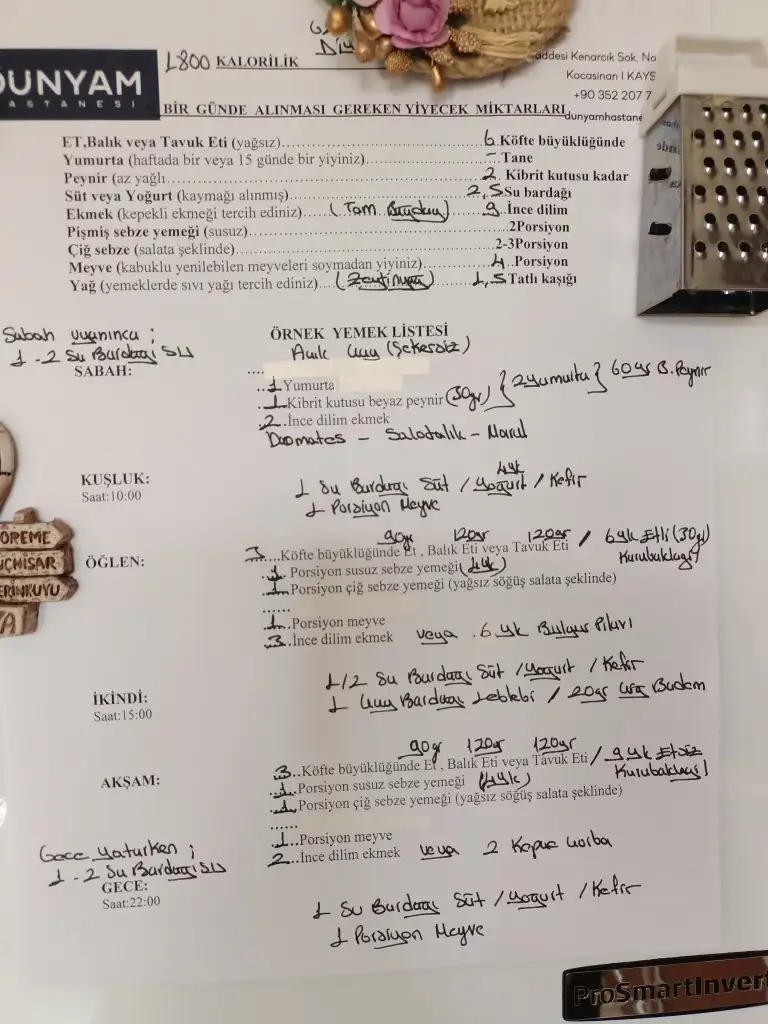 DUNYAM
ASTANESİ
1800 KALORİLİK
addesi Kenarcık Sok. No
Kocasinan | KAYS
+90 352 207 7
dunyamhastane
BİR GÜNDE ALINMASI GEREKEN YİYECEK MİKTARLARI
ET,Balık veya Tavuk Eti (yağsız)..............6 Köfte büyüklüğünde
Yumurta (haftada bir veya 15 günde bir yiyiniz)..............- Tane
Peynir (az yağlı..............2 Kibrit kutusu kadar
Süt veya Yoğurt (kaymağı alınmış)..............2,5 Su bardağı
Ekmek (kepekli ekmeği tercih ediniz).....(Tam Buğday)......9.İnce dilim
Pişmiş sebze yemeği (susuz)..............2Porsiyon
Çiğ sebze (salata şeklinde)..............2-3Porsiyon
Meyve (kabuklu yenilebilen meyveleri soymadan yiyiniz)..............4..Porsiyon
Yağ (yemeklerde sıvı yağı tercih ediniz)....(Zeytinyağ)......1,5 Tatlı kaşığı
Sabah uyanınca ;
1-2 Su Bardağı SU
ÖRNEK YEMEK LİSTESİ
SABAH:
.... Açık Çay (Şekersiz)
..1 Yumurta
..1.Kibrit kutusu beyaz peynir (30gr) } 2 yumurta } 60gr B.Peynir
..2.İnce dilim ekmek
Domates - Salatalık - Marul
KUŞLUK:
Saat:10:00
1 Su Bardağı Süt / 4yk Yoğurt / Kefir
1 Porsiyon Meyve
ÖĞLEN:
90gr 120gr 120gr / 6yk Etli (30gr) Kurubaklagil
..3....Köfte büyüklüğünde Et , Balık Eti veya Tavuk Eti
..1. Porsiyon susuz sebze yemeği (4yk)
..1.Porsiyon çiğ sebze yemeği (yağsız söğüş salata şeklinde)
......
..1..Porsiyon meyve
..3..İnce dilim ekmek veya 6 yk Bulgur Pilavı
İKİNDİ:
Saat:15:00
1/2 Su Bardağı Süt / Yoğurt / Kefir
1 Çay Bardağı Leblebi / 20gr Çiğ Badem
AKŞAM:
90gr 120gr 120gr / 9 yk Etsiz Kurubaklagil
..3..Köfte büyüklüğünde Et , Balık Eti veya Tavuk Eti
..1.Porsiyon susuz sebze yemeği (4yk)
..1.Porsiyon çiğ sebze yemeği (yağsız söğüş salata şeklinde)
......
..1..Porsiyon meyve
..2..İnce dilim ekmek veya 2 Kepçe Çorba
Gece yatarken ;
1-2 Su Bardağı SU
GECE:
Saat:22:00
1 Su Bardağı Süt / Yoğurt / Kefir
1 Porsiyon Meyve
ÖREME
UÇHİSAR
ERİNKUYU
A
ProSmartInvert